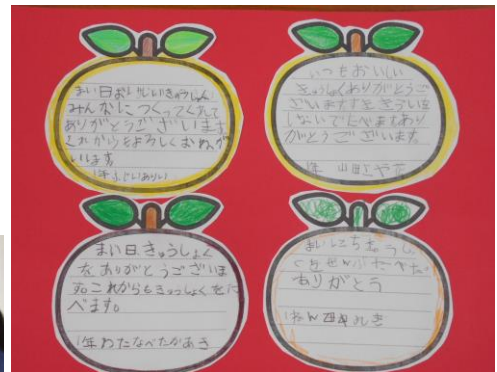 まい日おいしいきゅうしょく
みんなにつくってくれて
ありがとうございます
これからもよろしくおねが
いします
1年
いつもおいしい
きゅうしょくありがとうご
ざいます
しないでたべますあり
がとうございます。
1年
まい日きゅうしょく
をありがとうございま
す。これからもきゅうしょくをた
べます。
1年わたなべたかあき
まいにちきゅうし
ょく
ありがとう
1ねん